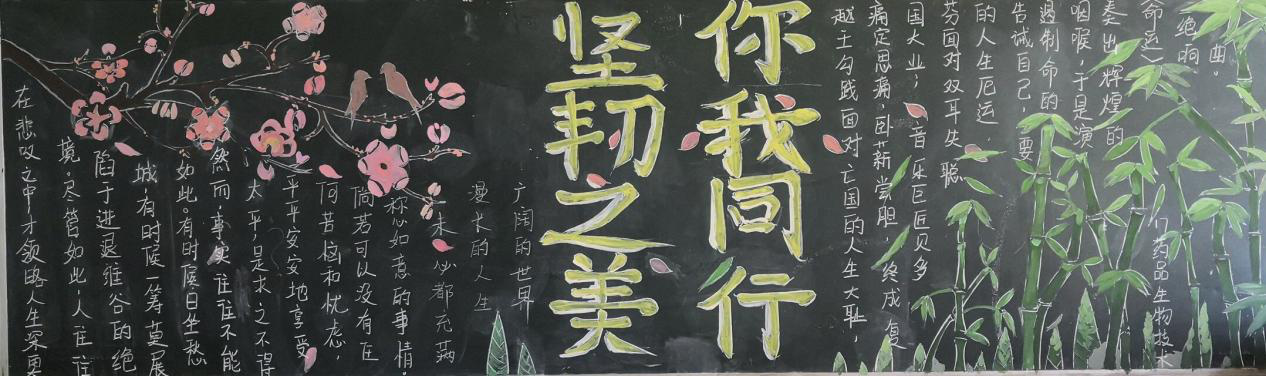 坚韧之美
你我同行
广阔的世界
漫长的人生
未必都充满
称心如意的事情。
倘若可以没有任
何苦恼和忧虑，
平平安安地享受
太平，是求之不得
然而，事实往往不能
如此。有时候日坐愁
城，有时候一筹莫展
陷于进退维谷的绝
境。尽管如此，人往往
在悲叹之中才领略人生深奥
越王勾践面对亡国的人生大耻，
痛定思痛，卧薪尝胆，终成复
国大业；音乐巨匠贝多
芬面对双耳失聪
的人生厄运
告诫自己，要
遏制命的
咽喉，于是演
奏出辉煌的
命运》
绝响
曲。
药品生物技术